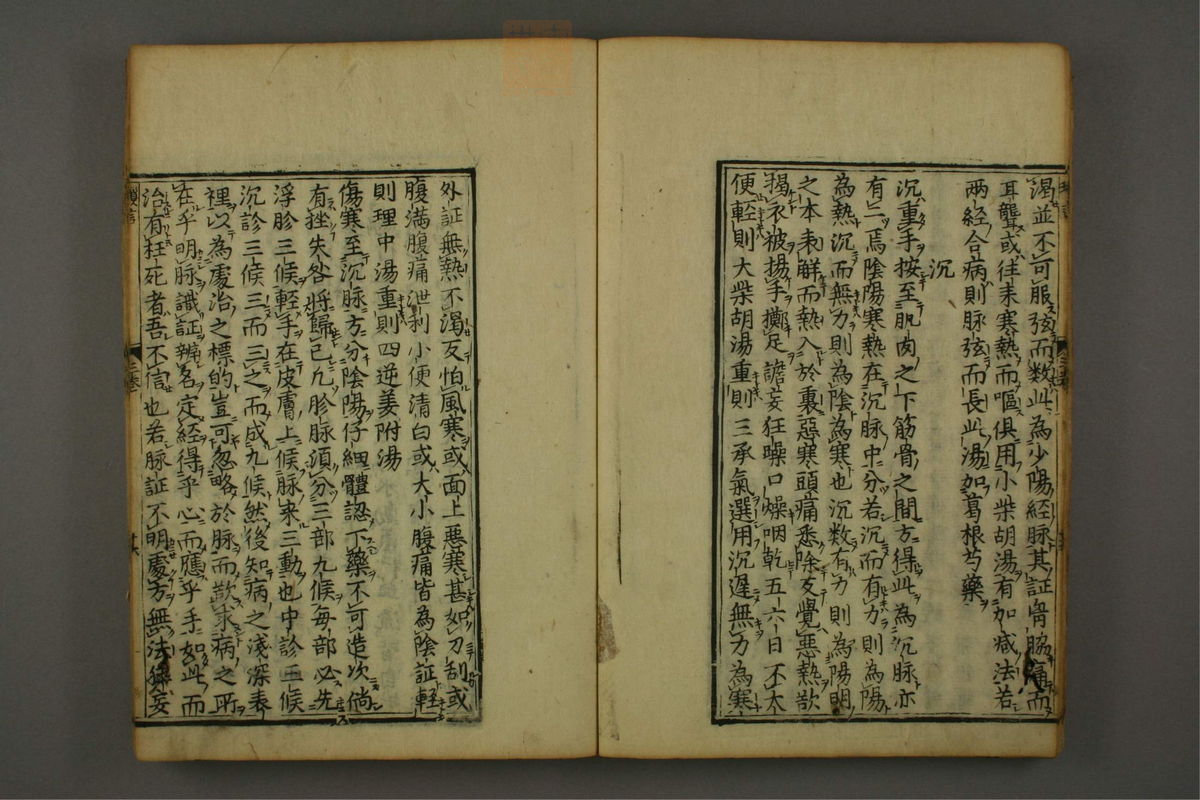 渴並不可服弦而数此為少陽経脉其証脇痛而
耳聾或往来寒熱而嘔俱用小柴胡湯有加减法若
两経合病則脉弦而長此湯加葛根芍藥
沉
沉重手按至肌肉之下筋骨之間方得此為沉脉亦
有二焉陰陽寒熱在沉脉中分若沉而有力則為陽
為熱沉而無力則為陰為寒也沉数有力則為陽明
之本表解而熱入於裏惡寒頭痛悉除反覺惡熱欲
揭衣被揚手擲足譫妄狂躁口燥咽乾五六日不大
便輕則大柴胡湯重則三承氣選用沉遲無力為寒
外証無熱不渴反怕風寒或面上惡寒甚如刀刮或
腹満腹痛泄利小便清白或大小腹痛皆為陰証輕
則理中湯重則四逆姜附湯
傷寒至沉脉方分陰陽仔細體認下藥不可造次倘
有挫失咎將歸己凡胗脉須分三部九候每部必先
浮胗三候輕手在皮膚上候脉来三動也中診三候
沉診三候三而三之而成九候然後知病之淺深表
裡以為處治之標的豈可忽略於脉而歎求病之所
在乎明脉識証辨名定経得乎心而應乎手如此而
治有枉死者吾不信也若脉証不明處方無法妄